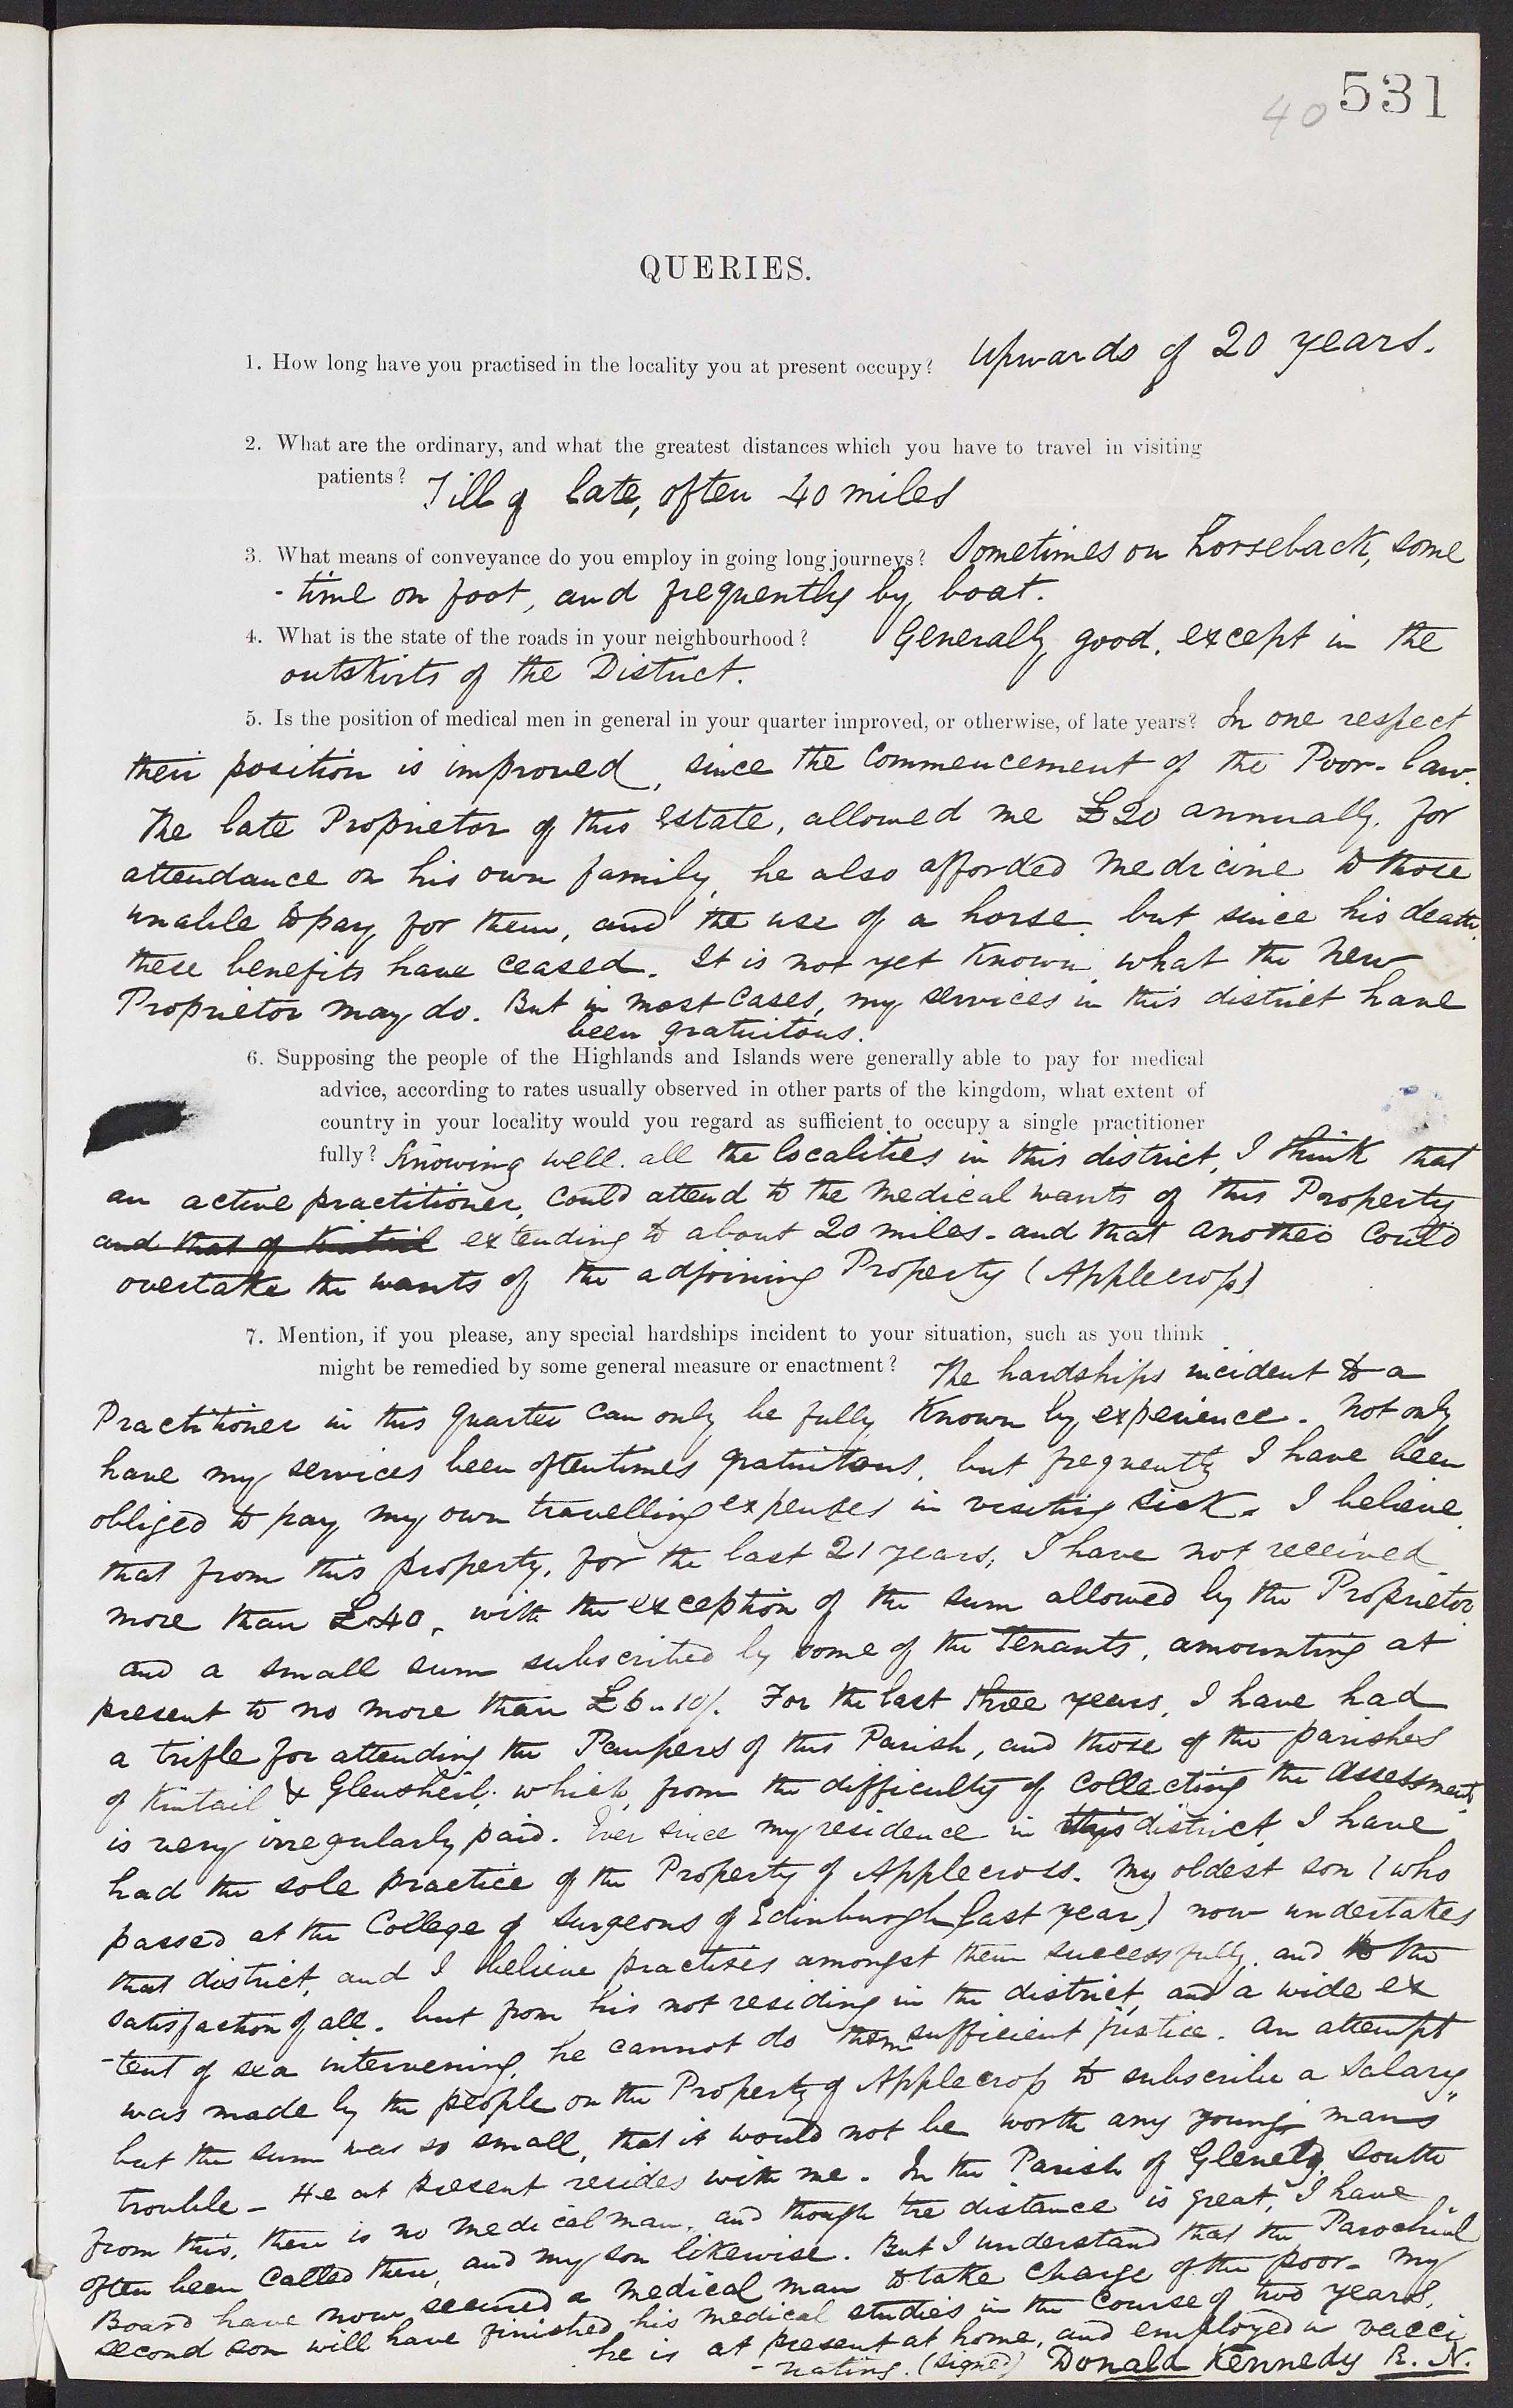 40 531
QUERIES.
1. How long have you practised in the locality you at present occupy? Upwards of 20 years.
2. What are the ordinary, and what the greatest distances which you have to travel in visiting
patients? Till of late, often 40 miles
3. What means of conveyance do you employ in going long journeys? Sometimes on horseback, some
-time on foot, and frequently by boat.
4. What is the state of the roads in your neighbourhood? Generally good, except in the
outskirts of the District.
5. Is the position of medical men in general in your quarter improved, or otherwise, of late years? In one respect
their position is improved, since the Commencement of the Poor-law.
The late Proprietor of this Estate, allowed me £20 annually, for
attendance on his own family, he also afforded Medicine to those
unable to pay for them, and the use of a horse but since his death,
these benefits have ceased. It is not yet known what the New
Proprietor may do. But in most cases, my services in this district have
been gratuitous.
6. Supposing the people of the Highlands and Islands were generally able to pay for medical
advice, according to rates usually observed in other parts of the kingdom, what extent of
country in your locality would you regard as sufficient to occupy a single practitioner
fully? Knowing well all the localities in this district, I think that
an active practitioner, could attend to the Medical wants of this Property
and that of Kintail extending to about 20 miles - and that another could
overtake the wants of the adjoining Property (Applecross)
7. Mention, if you please, any special hardships incident to your situation, such as you think
might be remedied by some general measure or enactment? The hardships incident to a
Practitioner in this quarter can only be fully known by experience. Not only
have my services been oftentimes gratuitous, but frequently I have been
obliged to pay my own travelling expenses in visiting sick. I believe
that from this property, for the last 21 years, I have not received
more than £40, with the exception of the sum allowed by the Proprietor
and a small sum subscribed by some of the Tenants, amounting at
present to no more than £6..10/. For the last three years, I have had
a trifle for attending the Paupers of this Parish, and those of the parishes
of Kintail & Glensheil, which, from the difficulty of collecting the Assessment,
is very irregularly paid. Ever since my residence in this district, I have
had the sole practice of the Property of Applecross. My oldest son (who
passed at the College of Surgeons of Edinburgh last year) now undertakes
that district, and I believe practises amongst them successfully, and to the
satisfaction of all. but from his not residing in the district, and a wide ex
-tent of sea intervening, he cannot do them sufficient justice. An attempt
was made by the people on the Property of Applecross to subscribe a Salary,
but the sum was so small, that it would not be worth any young man's
trouble - He at present resides with me. In the Parish of Glenelg, south
from this, there is no medical man, and though the distance is great, I have
often been called there, and my son likewise. But I understand that the Parochial
Board have now secured a medical man to take charge of the poor - My
second son will have finished his medical studies in the course of two years,
he is at present at home, and employed in vacci
-nating. (signed) Donald Kennedy R. N.